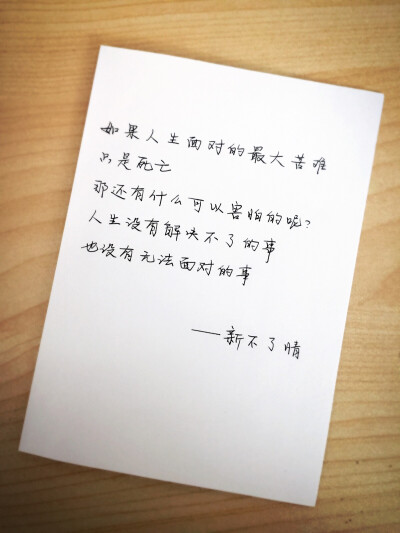 如果人生面对的最大苦难
只是死亡
那还有什么可以害怕的呢?
人生没有解决不了的事
也没有无法面对的事
——新不了晴